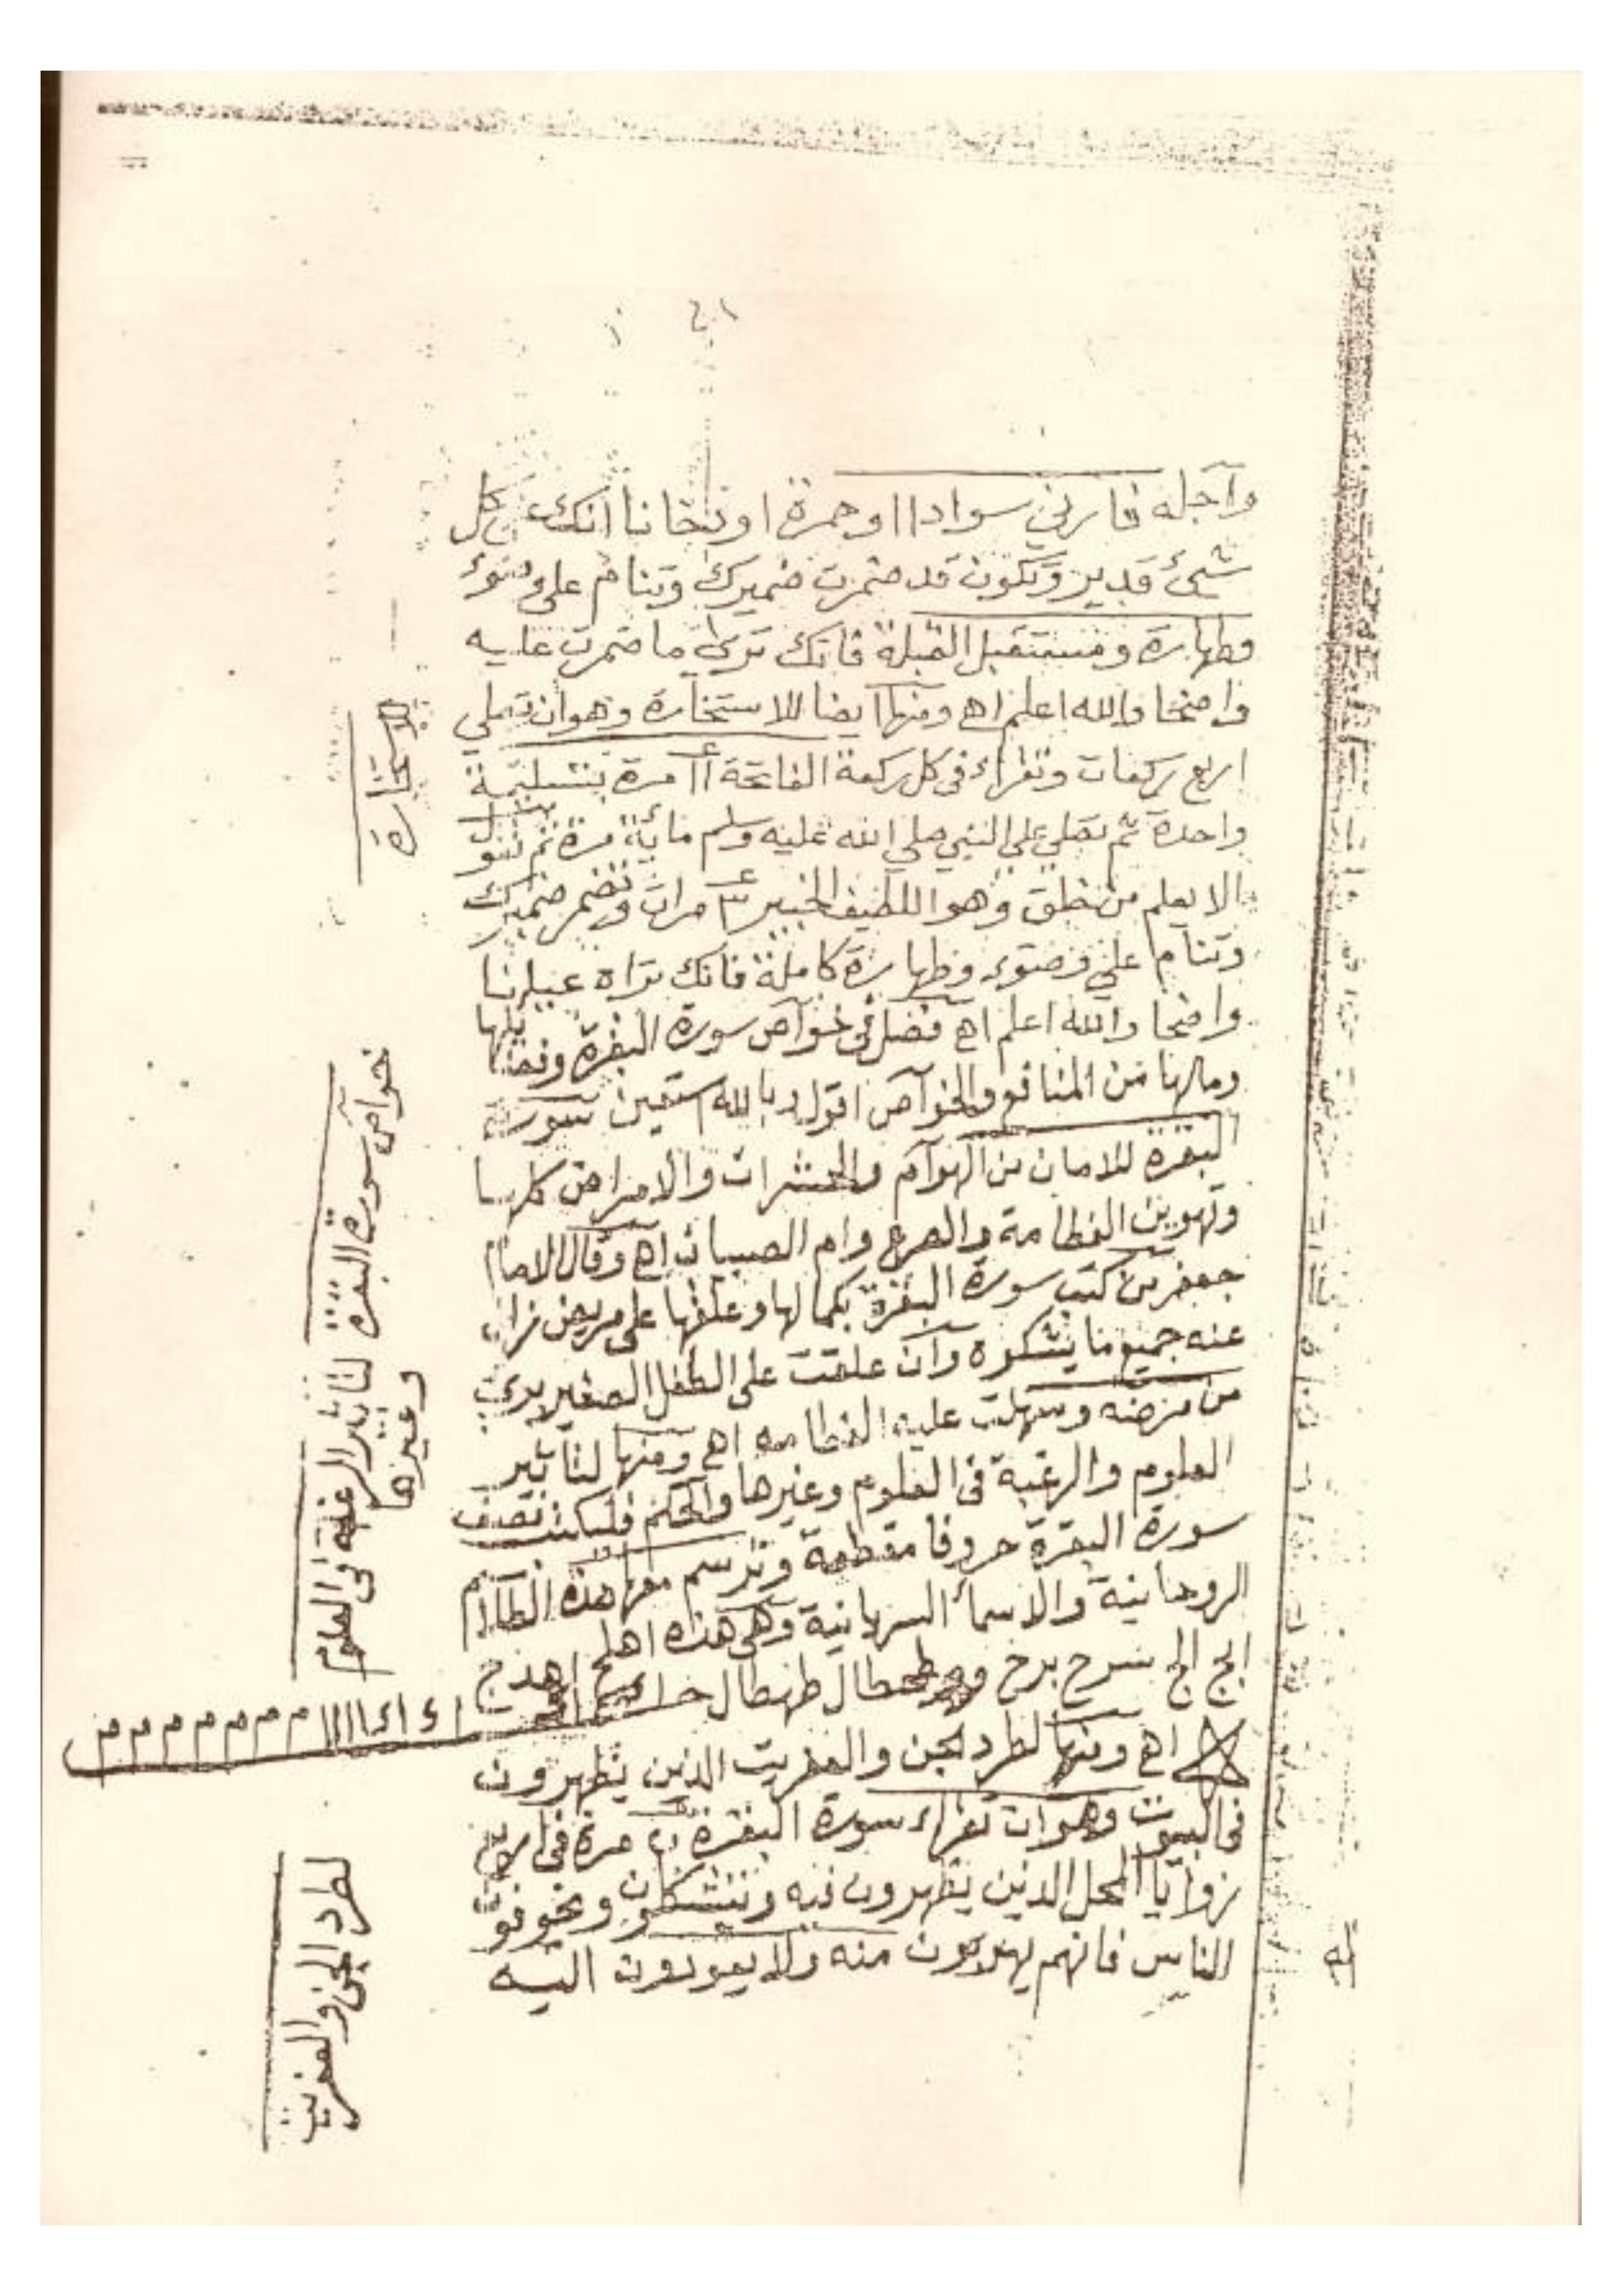 وآجله فارني سوادا او حمرة او دخانا انك على كل
شيئ قدير وتكون قد ضمرت ضميرك وتنام على وضوء
وطهارة ومستقبل القبلة فانك ترى ما ضمرت عليه
واضحا والله اعلم اهـ ومنها ايضا للاستخارة وهو ان تصلي
اربع ركعات وتقراء في كل ركعة الفاتحة ١١ مرة بتسليمة
واحدة ثم تصلي على النبي صلي الله عليه وسلم مائة مرة ثم تقول
الا يعلم من خلق وهو اللطيف الخبير ٣ مرات وتضمر ضميرك
وتنام علي وضوء وطهارة كاملة فانك تراه
واضحا والله اعلم اهـ فصل في خوآص سورة البقرة وفضلها
ومالها من المنافع والخوآص اقول وبالله استعين سورة
البقرة للامان من الهوآم والحشرات والامراض كلها
وتهوين الفطامة والصرع وام الصبيان اهـ وقال الامام
جعفر من كتب سورة البقرة بكمالها وعلقها على مريض زال
عنه جميع ما يشكوه وآن علقت على الطفل الصغير برئ
من مرضه وسهلت عليه الفطامه اهـ ومنها لتأثير
العلوم والرغبة في العلوم وغيرها والحكم فليكتب نصف
سورة البقرة حروفا مقطعة وترسم معها هذه الطلاسم
الروحانية والاسمأ السريانية وهي هذاه اهلج اهدج
سرح برخ طهطال
م م م م م م م
اهـ ومنها لطرد الجن والعفريت الذين يظهرون
في البيوت وهو ان تقراء سورة البقرة مرة في اربع
زوايا المحل الذين يظهرون فيه ويتشكلون ويخوفون
الناس فانهم يهربون منه ولا يعودون اليه
للاستخارة
خواص سورة البقرة
لتأثير الرغبة في العلوم
وغيرها
لطرد الجن والعفريت